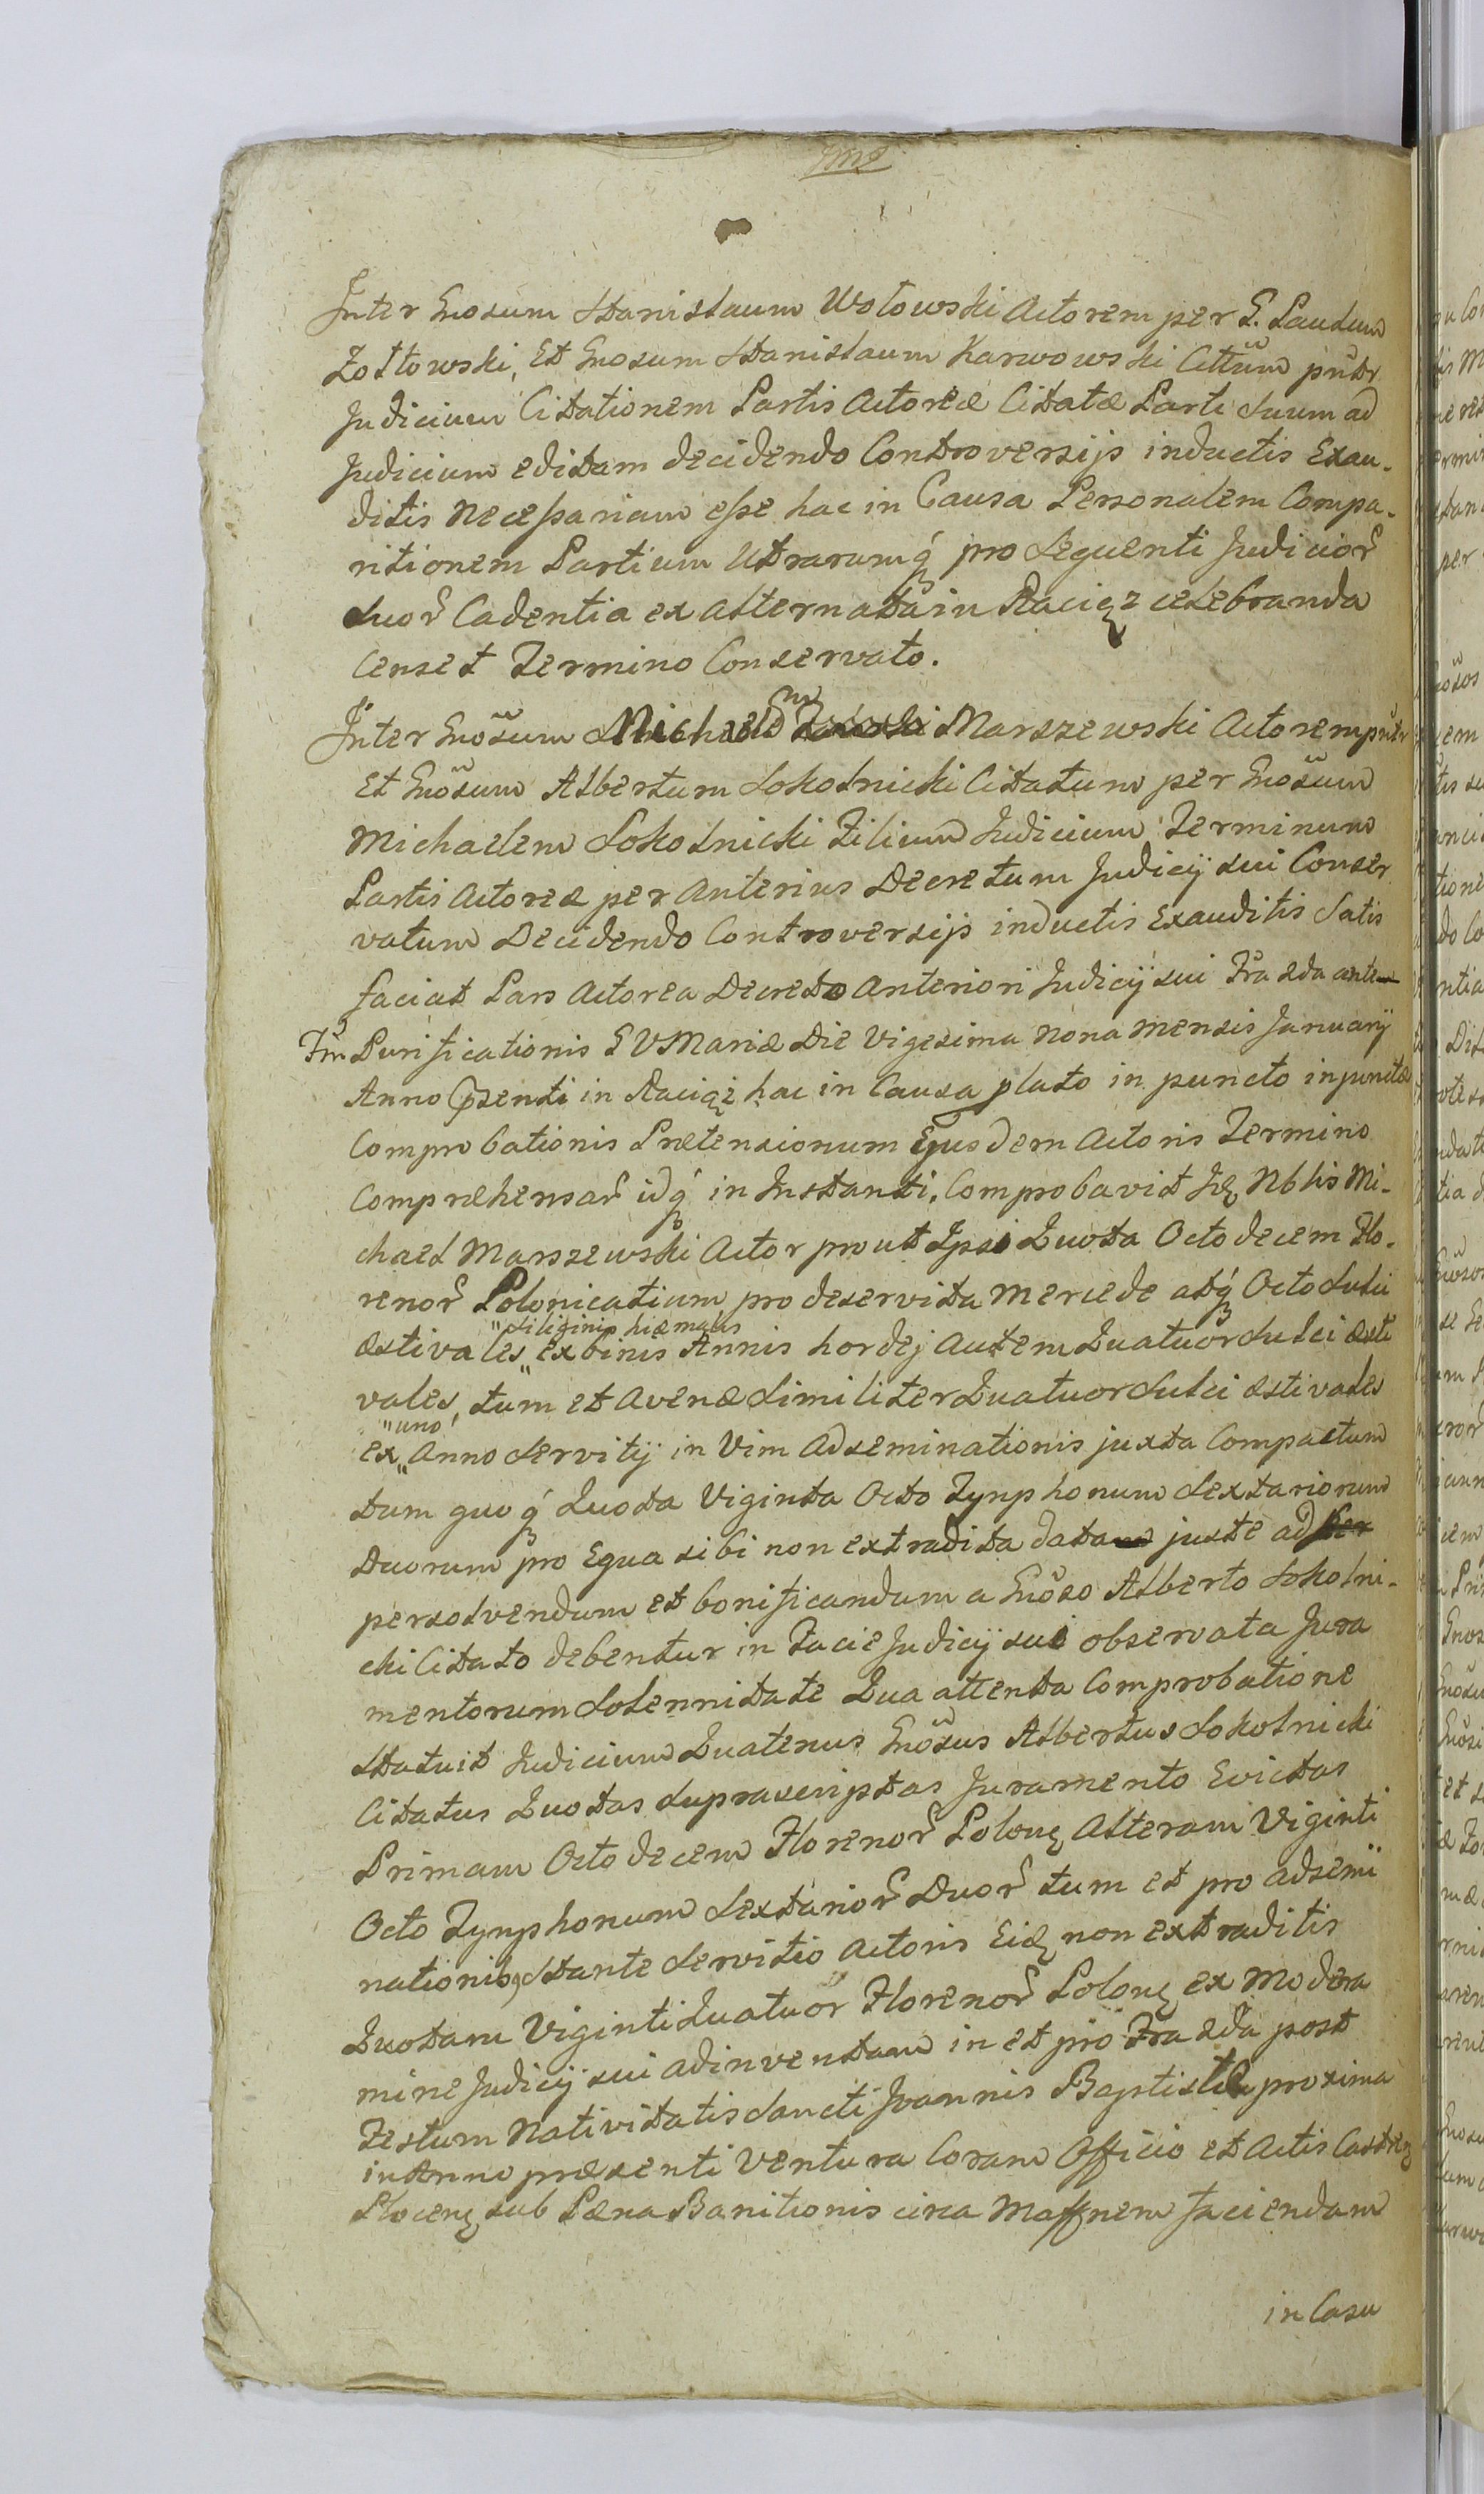 Inter Gnosum Stanislaum Wołowski Actorem per G. Paulum
Zołtowski, Et Gnosum Stanislaum Karwowski Cittũm pñtr
Judicium Citationem Partis Actoreæ Citatæ Parti suum ad
Judicium editam decidendo Controversijs inductis Exau-
ditis Necessariam esse hac in Causa Personalem Compa-
ritionem Partium Utrarumq́ pro Sequenti Judicior̃
Suor̃ Cadentia ex alternata in Raciąż celebranda
Censet Termino Conservato.
Inter Gnõsum Michaelem Marszewski Actorem pñtr
Et Gnõsum Albertum Sokolnicki Citatum per Gnõsum
Michaelem Sokolnicki Filium Judicium Terminum
Partis Actoreæ per anterius Decretum Judicij sui Conser
vatum Decidendo Controversijs inductis Exauditis Satis
faciat Pars Actorea Decreto Anteriori Judicij sui Fra 2da ante
Fm̃ Purificationis B V Mariæ Die Vigesima Nona Mensis Januarij
Anno Pzenti in Raciąż hac in Causa plato in puncto injunctæ
Comprobationis Prætensionum Ejusdem Actoris Termino
Compræhensar̃ idq́ in Instanti, Comprobavit Idę Nblis Mi-
chael Marszewski Actor prout Ipsi Quota Octodecem Flo-
renor̃ Polonicalium pro deservita Mercede atq́ Octo Sulci
"siliginis hiæmalis
æstivales " ex binis Annis hordej autem Quatuor Sulci æsti
vales, tum et Avenæ Similiter Quatuor Sulci æstivales
"uno
ex " Anno Servitij in Vim Adseminationis juxta Compactum
tum quoq́ Quota Viginta Octo Tynphonum Sextariorum
Duorum pro Equa sibi non extradita data juste ad
persolvendum et bonificandum a Gnõso Alberto Sokolni-
cki Citato debentur in Facie Judicij sui observata Jura
mentorum Solennitate Qua attenta Comprobatione
Statuit Judicium Quatenus Gnõsus Albertus Sokolnicki
Citatus Quotas suprascriptas Juramento Evictas
Primam Octodecem Florenor̃ Polonę Alteram Viginti
Octo Tynphonum Sextarior̃ Duor̃ tum et pro adsemi
nationibȝ Stante Servitio Actoris Eidę non extraditis
Quotam Viginti Quatuor Florenor̃ Polonę ex Modera
mine Judicij sui adinventam in et pro Fra 2da post
Festum Nativitatis Sancti Joannis Baptistæ proxima
in Anno præsenti Ventura Coram Officio et Actis Castreę
Plocenę sub Pæna Banitionis circa Maffnem faciendam
in Casu